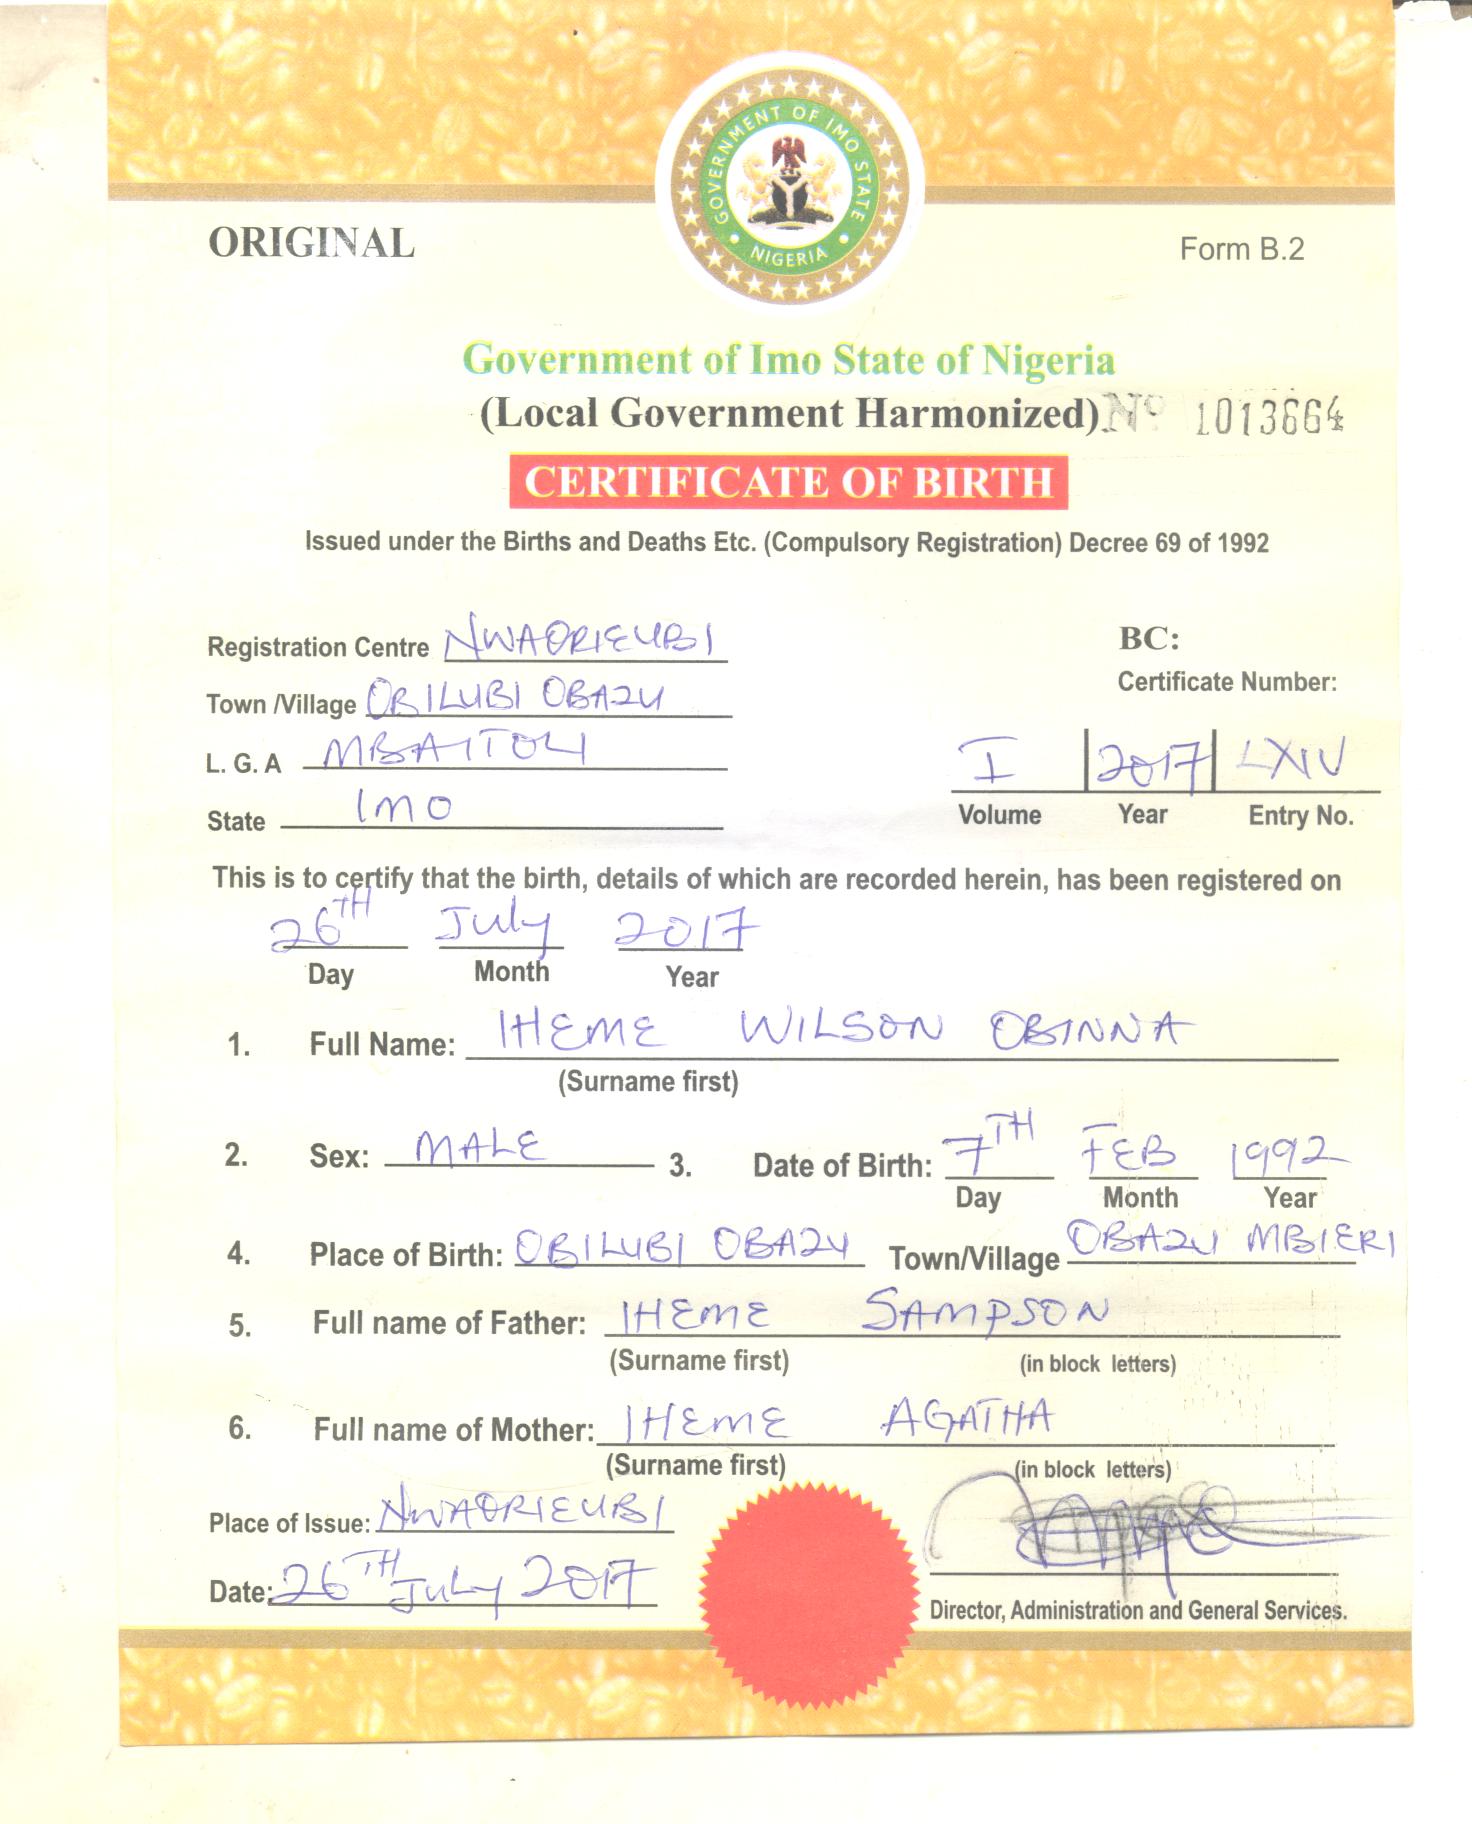 GOVERNMENT OF IMO STATE
NIGERIA
ORIGINAL
Form B.2
Government of Imo State of Nigeria
(Local Government Harmonized) Nº 1013664
CERTIFICATE OF BIRTH
Issued under the Births and Deaths Etc. (Compulsory Registration) Decree 69 of 1992
Registration Centre NWAORIEUBI
BC:
Town /Village OBILUBI OBAZU
Certificate Number:
L. G. A MBAITOLI
I 2017 LXIV
State IMO
Volume Year Entry No.
This is to certify that the birth, details of which are recorded herein, has been registered on
26TH July 2017
Day Month Year
1. Full Name: IHEME WILSON OBINNA
(Surname first)
2. Sex: MALE 3. Date of Birth: 7TH FEB 1992
Day Month Year
4. Place of Birth: OBILUBI OBAZU Town/Village OBAZU MBIERI
5. Full name of Father: IHEME SAMPSON
(Surname first) (in block letters)
6. Full name of Mother: IHEME AGATHA
(Surname first) (in block letters)
Place of Issue: NWAORIEUBI
Date: 26TH July 2017
Director, Administration and General Services.